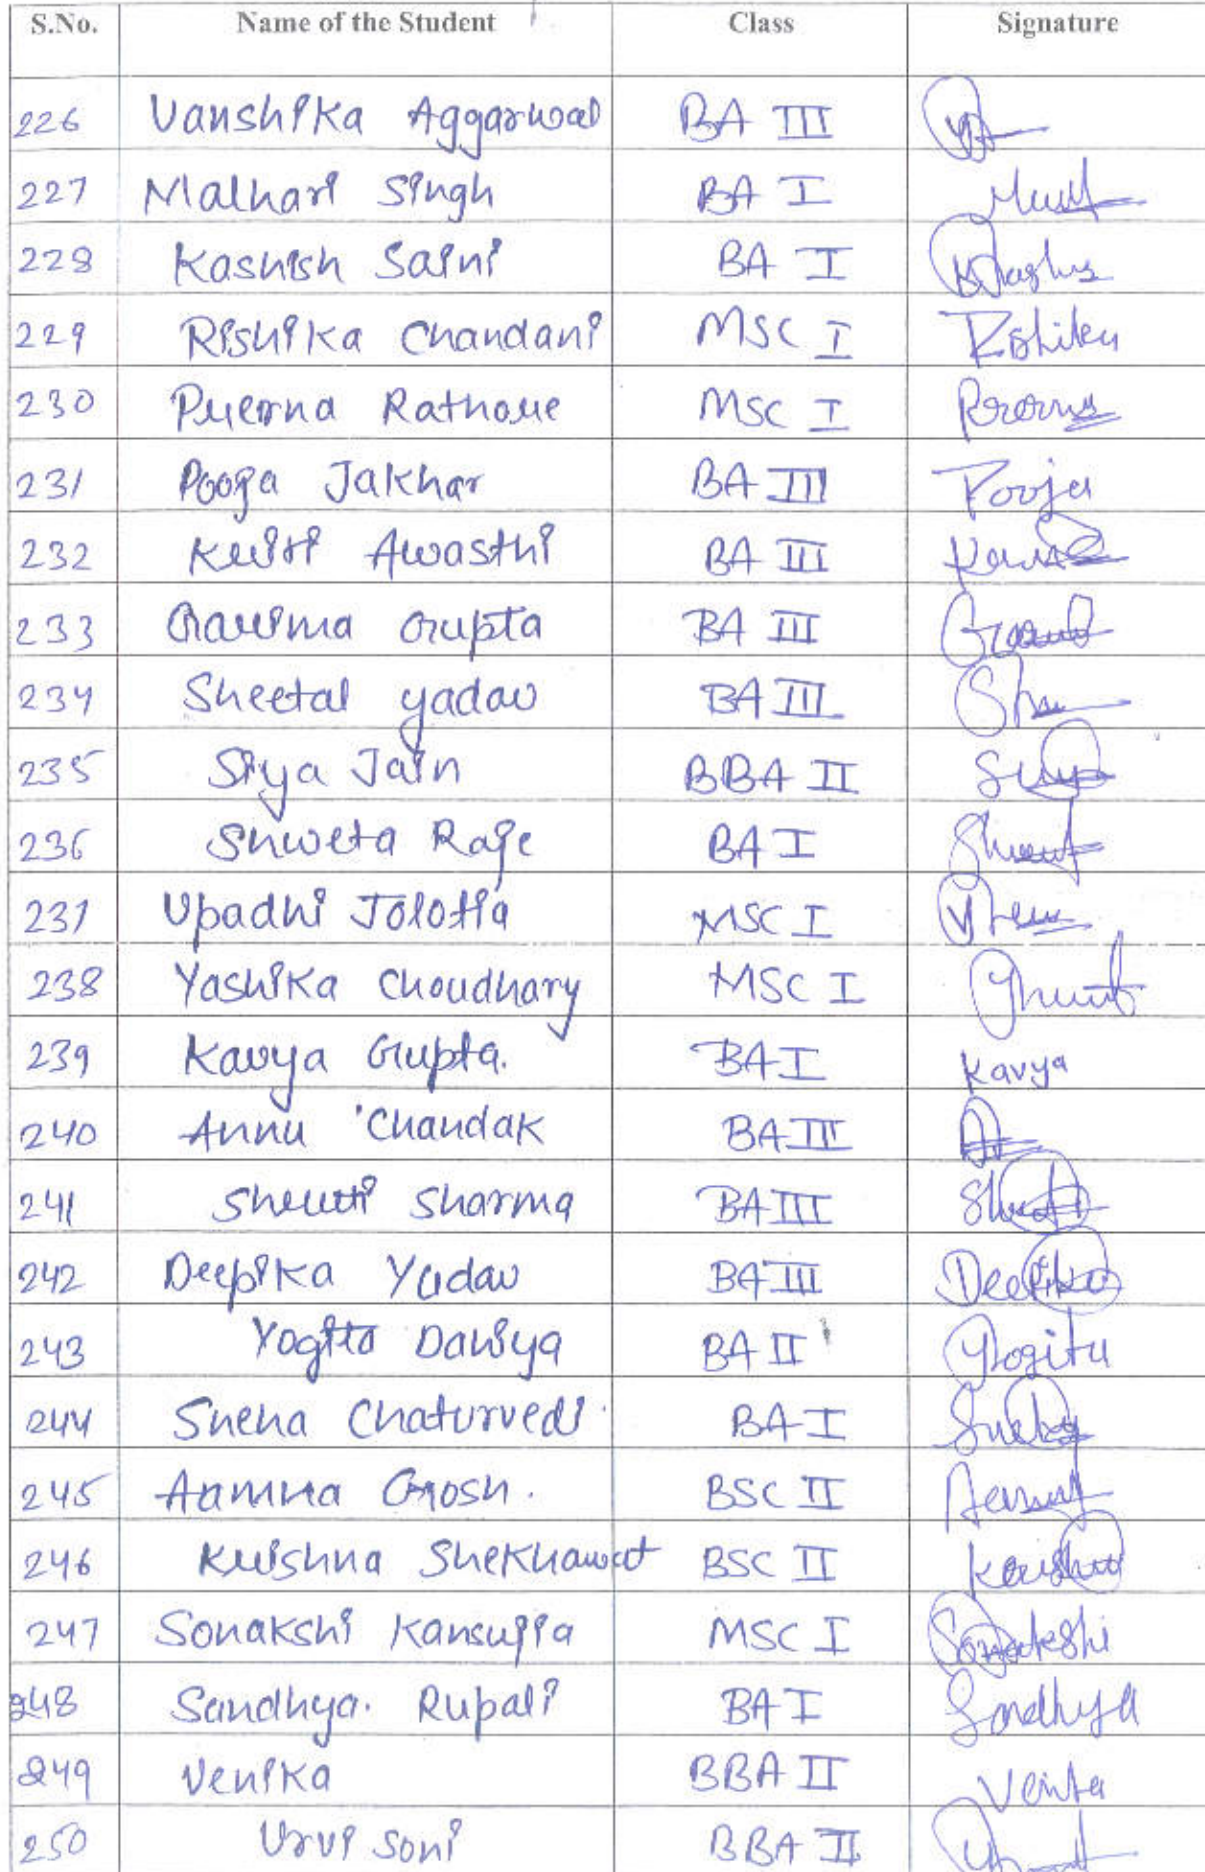 S.No. Name of the Student Class Signature
226 Vanshika Aggarwal BA III
227 Malhari Singh BA I
228 Kashish Saini BA I
229 Rishika Chandani MSC I Rishika
230 Prerna Rathore MSC I Prerna
231 Pooja Jakhar BA III Pooja
232 Kriti Awasthi BA III
233 Garima Gupta BA III
234 Sheetal yadav BA III
235 Siya Jain BBA II Siya
236 Shweta Raje BA I
237 Upadhi Jolotia MSC I
238 Yashika Choudhary MSC I
239 Kavya Gupta. BA I Kavya
240 Annu Chandak BA III
241 Shruti Sharma BA III
242 Deepika Yadav BA III Deepika
243 Yogita Daniya BA II Yogita
244 Sneha Chaturvedi BA I Sneha
245 Aamna Ghosh. BSC II
246 Krishna Shekhawat BSC II Krishna
247 Sonakshi Kansujia MSC I Sonakshi
248 Sandhya. Rupali BA I Sandhya
249 Venika BBA II Venika
250 Urvi Soni BBA II